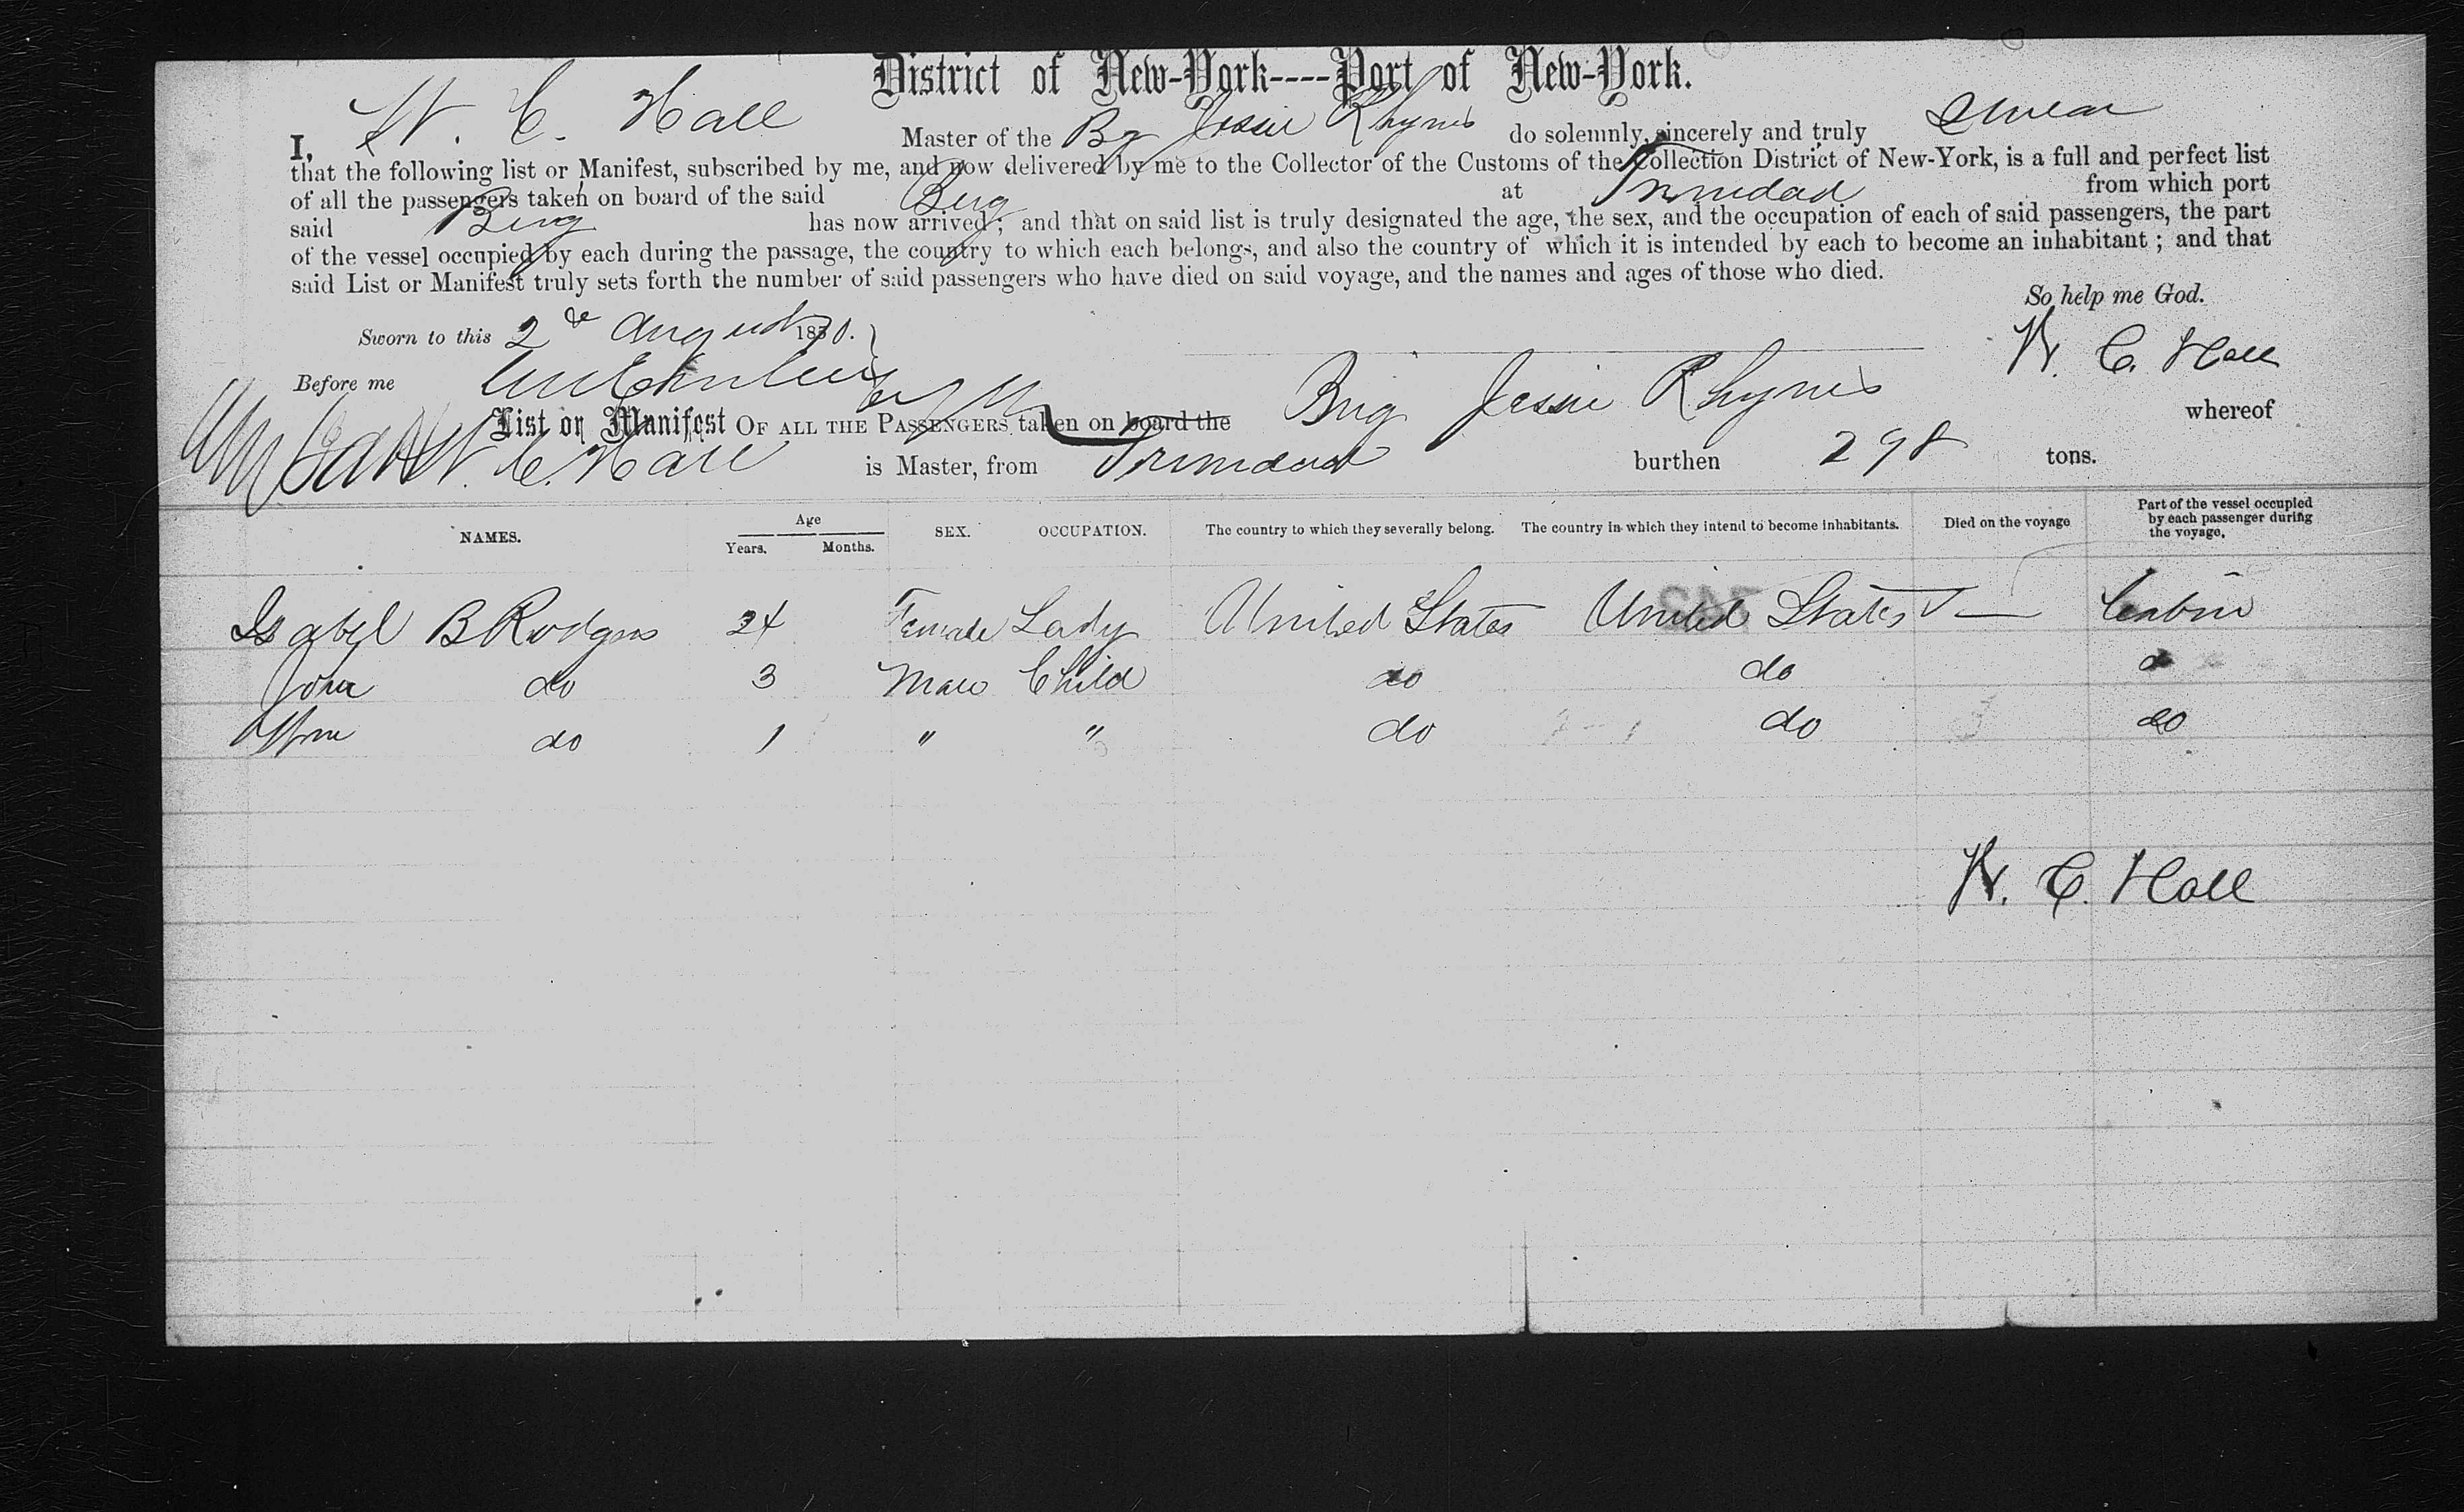 District of New-York----Port of New-York.
I, W. C. Hall Master of the Bg Jessie Rhynas do solemnly, sincerely and truly swear
that the following list or Manifest, subscribed by me, and now delivered by me to the Collector of the Customs of the Collection District of New-York, is a full and perfect list
of all the passengers taken on board of the said Brig at Trinidad from which port
said Brig has now arrived; and that on said list is truly designated the age, the sex, and the occupation of each of said passengers, the part
of the vessel occupied by each during the passage, the country to which each belongs, and also the country of which it is intended by each to become an inhabitant; and that
said List or Manifest truly sets forth the number of said passengers who have died on said voyage, and the names and ages of those who died.
So help me God.
Sworn to this 2d August 18
W. C. Hall
Before me
List or Manifest OF ALL THE PASSENGERS taken on board the Brig Jessie Rhynas whereof
W. C. Hall is Master, from Trinidad burthen 298 tons.
NAMES. Age Years. Months. SEX. OCCUPATION. The country to which they severally belong. The country in which they intend to become inhabitants. Died on the voyage Part of the vessel occupied by each passenger during the voyage.
Isabel B Rodgers 24 Female Lady United States United States — Cabin
John do 3 Male Child do do do
Wm do 1 " " do do do
W. C. Hall